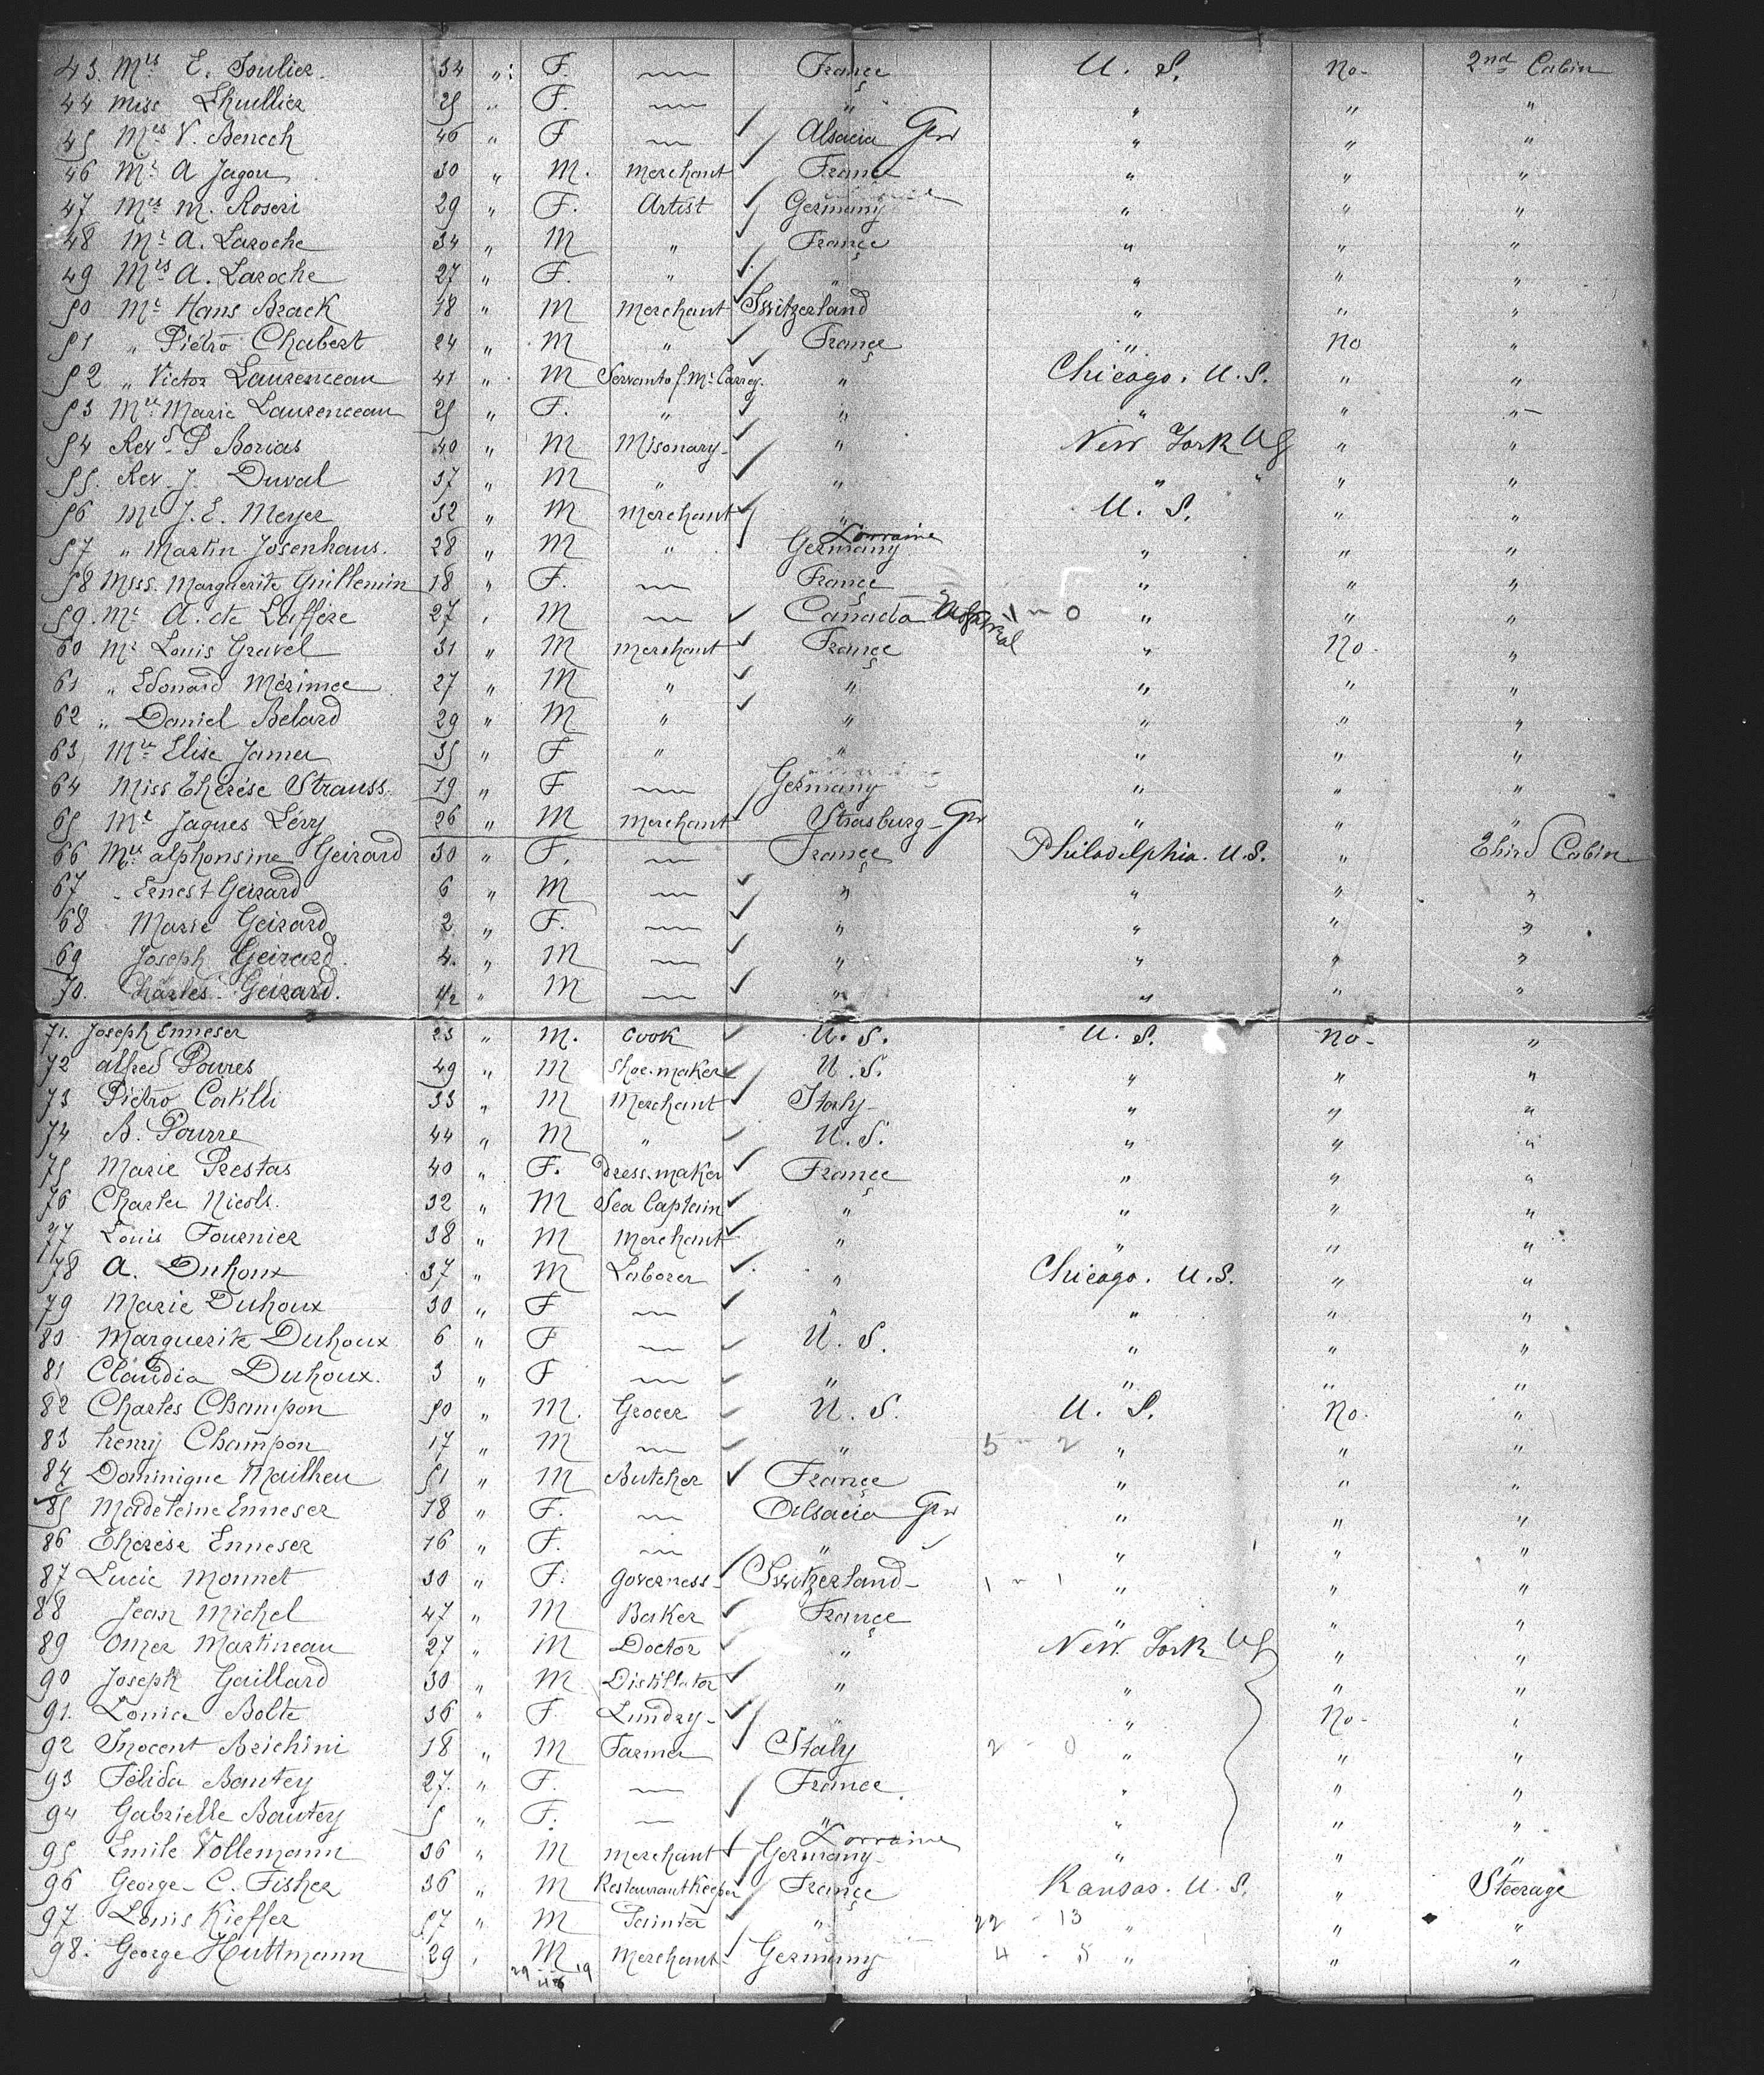 43. Mrs E. Soulier. 34 " F. France U. S. No- 2nd Cabin
44 Miss Lhuillier 25 " F. " " " "
45 Mrs V. Benech 46 " F Alsacia Ger " " "
46 Mr A Jagou 30 " M. Merchant France " " "
47 Mrs M. Roseri 29 " F. Artist Germany " " "
48 Mr A. Laroche 34 " M " France " " "
49 Mrs A. Laroche 27 " F. " " " " "
50 Mr Hans Brack 18 " M Merchant Switzerland " " "
51 " Piétro Chabert 24 " M " France " No "
52 " Victor Laurenceau 41 " M Servant of Mr Carrey. " Chicago. U.S. " "
53 Mrs Marie Laurenceau 25 " F. " " " " "
54 Revd P Borias 40 " M Misonary " New York US " "
55. Rev. J. Duval 37 " M " " " " "
56 Mr J. E. Meyer 32 " M Merchant " U. S. " "
57 " Martin Josenhaus. 28 " M " Germany Lorraine " " "
58 Miss. Marguerite Guillemin 18 " F. France " " "
59. Mr A. de Laffère 27 " M Canada 1 - 0 " " "
60 Mr Louis Gravel 31 " M Merchant France " No- "
61 " Edouard Mérimee 27 " M " " " " "
62 " Daniel Belard 29 " M " " " " "
63 Mrs Elise Jamer 35 " F " " " " "
64 Miss Thérèse Strauss. 19 " F Germany " " "
65 Mr Jaques Lévy 26 " M Merchant Strasburg - Ger " " "
66 Mrs Alphonsine Geirard 30 " F. France Philadelphia. U.S. " Third Cabin
67 " Ernest Geirard 6 " M " " " "
68 Marie Geirard 2 " F. " " " "
69 Joseph Geirard. 4. " M " " " "
70. Charles Geirard. 1/2 " M " " " "
71. Joseph Enneser 23 " M. Cook U. S. U. S. No- "
72 Alfred Pourés 49 " M Shoe-maker U. S. " " "
73 Piétro Catilli 33 " M Merchant Italy- " " "
74 B. Pourre 44 " M " U. S. " " "
75 Marie Prestas 40 " F. Dress-maker France " " "
76 Charles Nicols. 32 " M Sea Captain " " " "
77 Louis Fournier 38 " M Merchant " " " "
78 A. Duhoux 37 " M Laborer " Chicago. U.S. " "
79 Marie Duhoux 30 " F " " " "
80 Marguerite Duhoux 6 " F U. S. " " "
81 Claudia Duhoux. 3 " F " " " "
82 Charles Champon 50 " M. Grocer U. S. U. S. No. "
83 Henry Champon 17 " M " 5 - 2 " " "
84 Dominique Mailheu 51 " M Butcher France " " "
85 Madeleine Enneser 18 " F. Alsacia Ger " " "
86 Thérèse Enneser 16 " F. " " " "
87 Lucie Monnet 30 " F. Governess- Switzerland- 1 - 1 " " "
88 Jean Michel 47 " M Baker France " " "
89 Omer Martineau 27 " M Doctor " New York US " "
90 Joseph Gaillard 30 " M Distillator " " " "
91. Louise Bolte 36 " F. Lundry- " " No- "
92 Inocent Brichini 18 " M Farmer Italy 2 - 0 " " "
93 Félida Bautey 27. " F. France " " "
94 Gabrielle Bautey 5 " F. " " " "
95 Emile Vollemann 36 " M Merchant Germany Lorraine " " "
96 George- C. Fisher 36 " M Restaurant Keeper France Kansas. U. S. " Steerage
97 Louis Kieffer 57 " M Painter " 22 - 13 " " "
98. George Huttmann 29 " M Merchant Germany 4 - 5 " " "
29 19